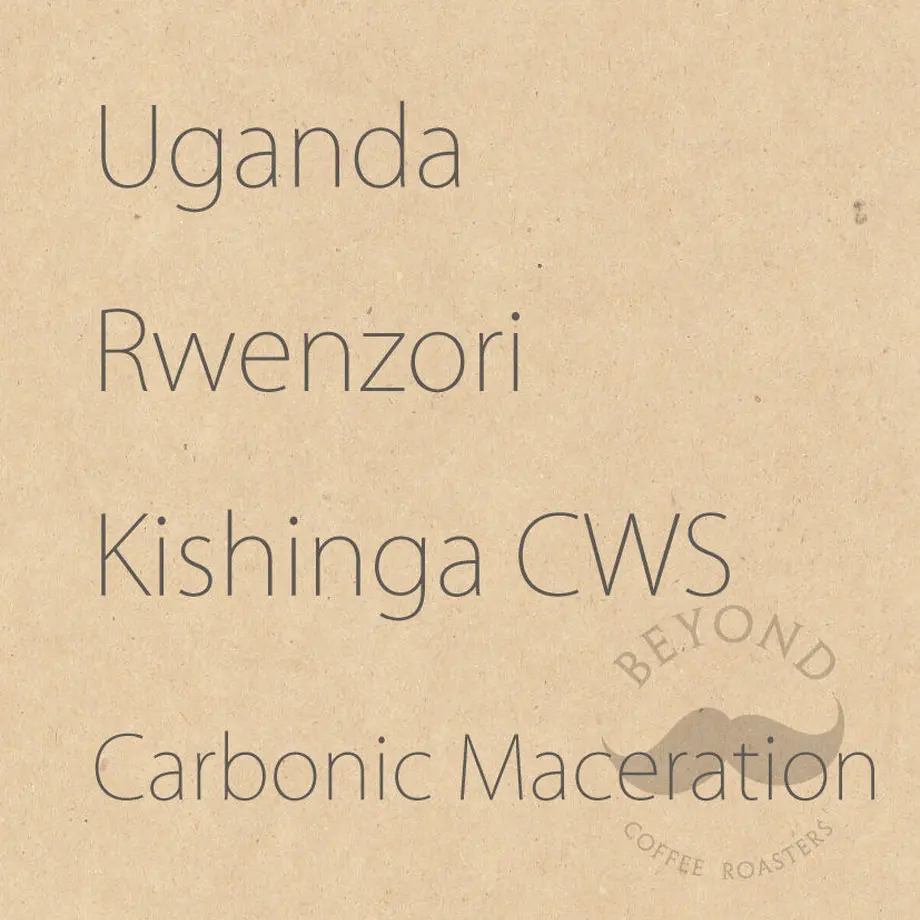 Uganda
Rwenzori
Kishinga CWS
BEYOND
Carbonic Maceration
COFFEE ROASTERS